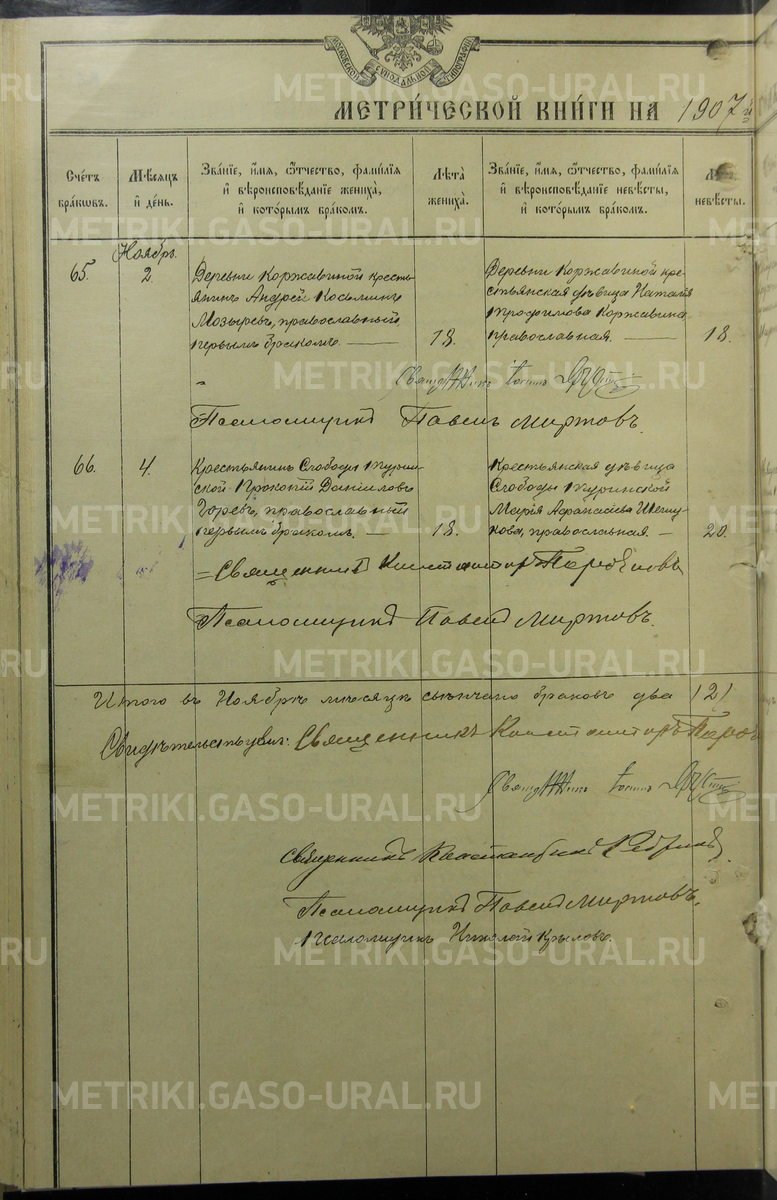 МОСКОВСКОЙ СѴНОДАЛЬНОЙ ТИПОГРАФІИ
МЕТРИ́ЧЕСКОЙ КНИ́ГИ НА 1907 й
Счетъ браковъ.
Мѣсяцъ и день.
Званіе, имя, отчество, фамилія и вѣроисповѣданіе жениха, и которымъ бракомъ.
Лѣта жениха.
Званіе, имя, отчество, фамилія и вѣроисповѣданіе невѣсты, и которымъ бракомъ.
невѣсты.
Ноябрь.
65. 2
Деревни Коржавиной кресть-
янинъ Андрей Косьминъ
Мозыревъ, православный
первымъ бракомъ. — 18.
Деревни Коржавиной кре-
стьянская дѣвица Наталія
Трофимова Коржавина
православная. — 18.
Псаломщикъ Павелъ Миртовъ.
66. 4.
Крестьянинъ Слободы Турин-
ской Прокопій Даніиловъ
Зыревъ, православный
первымъ бракомъ. — 18.
Крестьянская дѣвица
Слободы Туринской
Марія Афанасіева
православная. — 20.
Священникъ Константинъ
Псаломщикъ Павелъ Миртовъ.
Итого въ Ноябрѣ мѣсяцѣ свѣнчано браковъ два /2/
Свидѣтельствуемъ: Священникъ
Священникъ Константинъ
Псаломщикъ Павелъ Миртовъ.
Псаломщикъ Николай Крыловъ.
METRIKI.GASO-URAL.RU